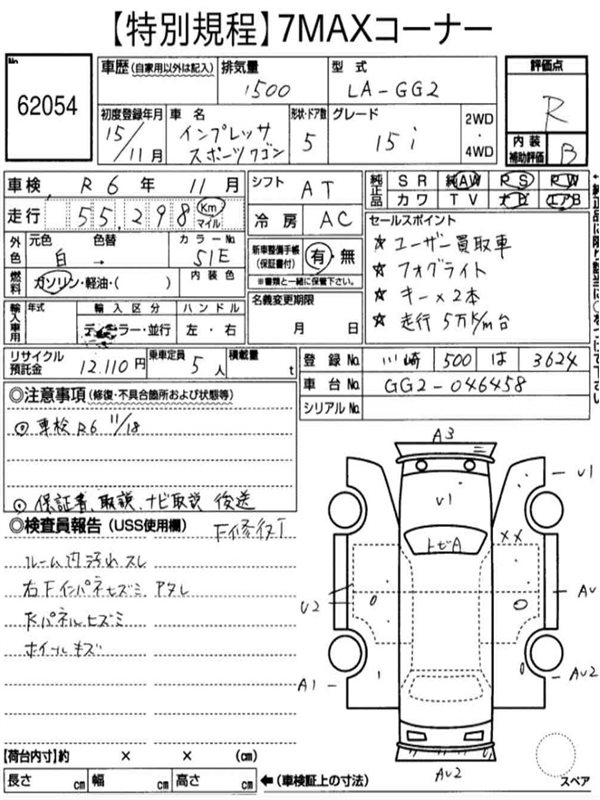 【特別規程】7MAXコーナー
No. 62054
車歴(自家用以外は記入) 排気量 1500 型式 LA-GG2 評価点 R
初度登録年月 15/11月 車名 インプレッサ スポーツワゴン 形状・ドア数 5 グレード 15i 2WD・4WD 内装補助評価 B
車検 R6年 11月 シフト AT 純正品 SR 純AW PS PW
カワ TV ナビ エアB
走行 55,298 Km マイル 冷房 AC
セールスポイント
外色 元色 白 色替 → カラーNo. 51E 新車整備手帳(保証書付) 有・無
※書類と一緒に保管下さい。
☆ ユーザー買取車
☆ フォグライト
☆ キー×2本
☆ 走行5万K/m台
燃料 ガソリン・軽油・( ) 内装色
名義変更期限 月 日
輸入車用 年式 輸入区分 ディーラー・並行 ハンドル 左・右
リサイクル預託金 12.110円 乗車定員 5人 積載量 t
登録No. 川崎 500 は 3624
車台No. GG2-046458
シリアルNo.
◎注意事項(修復・不具合箇所および状態等)
◎ 車検 R6 11/18
◎ 保証書、取説、ナビ取説 後送
◎検査員報告(USS使用欄)
ルーム内汚れ スレ
右Fインパネヒズミ アタレ
ホイールキズ
A3
U1
U1
トビA
XX
U2
AU
A1
AU2
AU2
スペア
【荷台内寸】約 × × (cm)
長さ cm 幅 cm 高さ cm ←(車検証上の寸法)